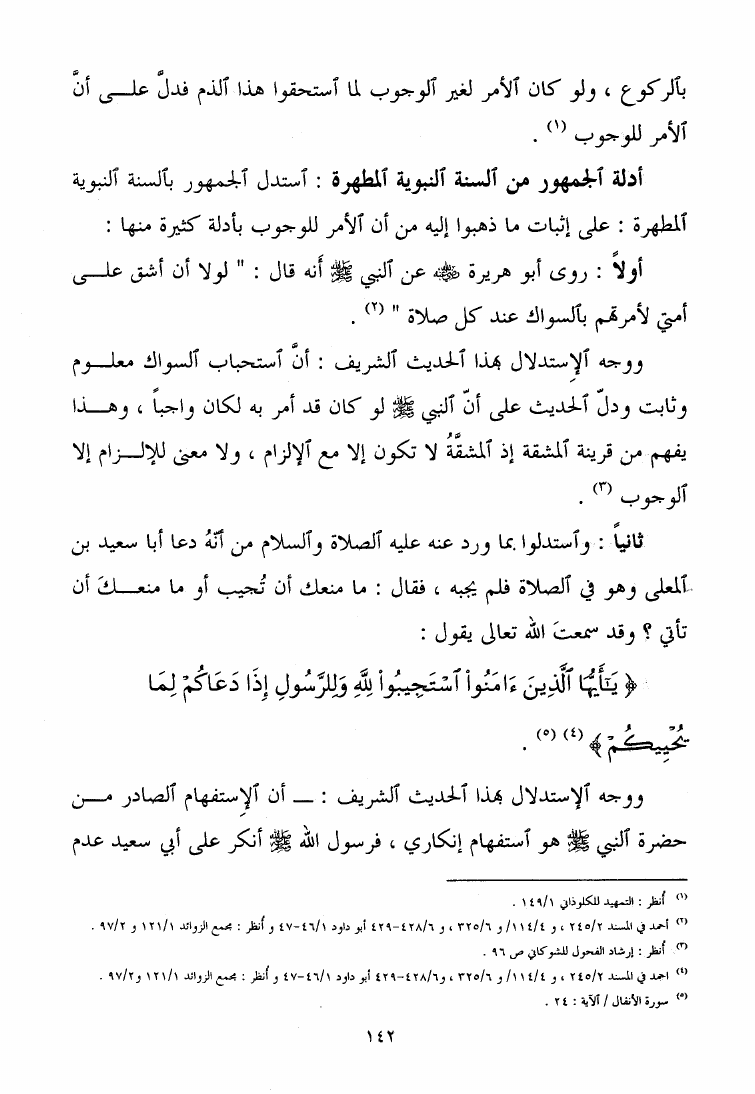 بٱلركوع ، ولو كان ٱلأمر لغير ٱلوجوب لما ٱستحقوا هذا ٱلذم فدلَّ علــى أنَّ
ٱلأمر للوجوب (١) .
أدلة ٱلجمهور من ٱلسنة ٱلنبوية ٱلمطهرة : ٱستدل ٱلجمهور بٱلسنة ٱلنبوية
ٱلمطهرة : على إثبات ما ذهبوا إليه من أن ٱلأمر للوجوب بأدلة كثيرة منها :
أولاً : روى أبو هريرة ﷺ عن ٱلنبي ﷺ أنه قال : " لولا أن أشق علــى
أمتي لأمرتهم بٱلسواك عند كل صلاة " (٢) .
ووجه ٱلإستدلال بهذا ٱلحديث ٱلشريف : أنَّ ٱستحباب ٱلسواك معلــوم
وثابت ودلّ ٱلحديث على أنّ ٱلنبي ﷺ لو كان قد أمر به لكان واجباً ، وهــذا
يفهم من قرينة ٱلمشقة إذ ٱلمشقَّةُ لا تكون إلا مع ٱلإلزام ، ولا معنى للإلــزام إلا
ٱلوجوب (٣) .
ثانياً : وٱستدلوا بما ورد عنه عليه ٱلصلاة وٱلسلام من أنّهُ دعا أبا سعيد بن
ٱلمعلى وهو في ٱلصلاة فلم يجبه ، فقال : ما منعك أن تُجيب أو ما منعــكَ أن
تأتي ؟ وقد سمعتَ الله تعالى يقول :
﴿ يَٰٓأَيُّهَا ٱلَّذِينَ ءَامَنُواْ ٱسْتَجِيبُواْ لِلَّهِ وَلِلرَّسُولِ إِذَا دَعَاكُمْ لِمَا
يُحْيِيكُمْ ﴾ (٤) (٥) .
ووجه ٱلإستدلال بهذا ٱلحديث ٱلشريف : ــ أن ٱلإستفهام ٱلصادر مــن
حضرة ٱلنبي ﷺ هو ٱستفهام إنكاري ، فرسول الله ﷺ أنكر على أبي سعيد عدم
(١) أُنظر : التمهيد للكلوذاني ١٤٩/١ .
(٢) أحمد في المسند ٢٤٥/٢ ، و ١١٤/٤/ و ٣٢٥/٦ ، و ٤٢٨/٦-٤٢٩ أبو داود ٤٦/١-٤٧ و أُنظر : مجمع الزوائد ١٢١/١ و ٩٧/٢ .
(٣) أُنظر : إرشاد الفحول للشوكاني ص ٩٦ .
(٤) احمد في المسند ٢٤٥/٢ ، و ١١٤/٤/ و ٣٢٥/٦ ، و٤٢٨/٦-٤٢٩ أبو داود ٤٦/١-٤٧ و أُنظر : مجمع الزوائد ١٢١/١ و٩٧/٢ .
(٥) سورة الأنفال / ٱلآية : ٢٤ .
١٤٢